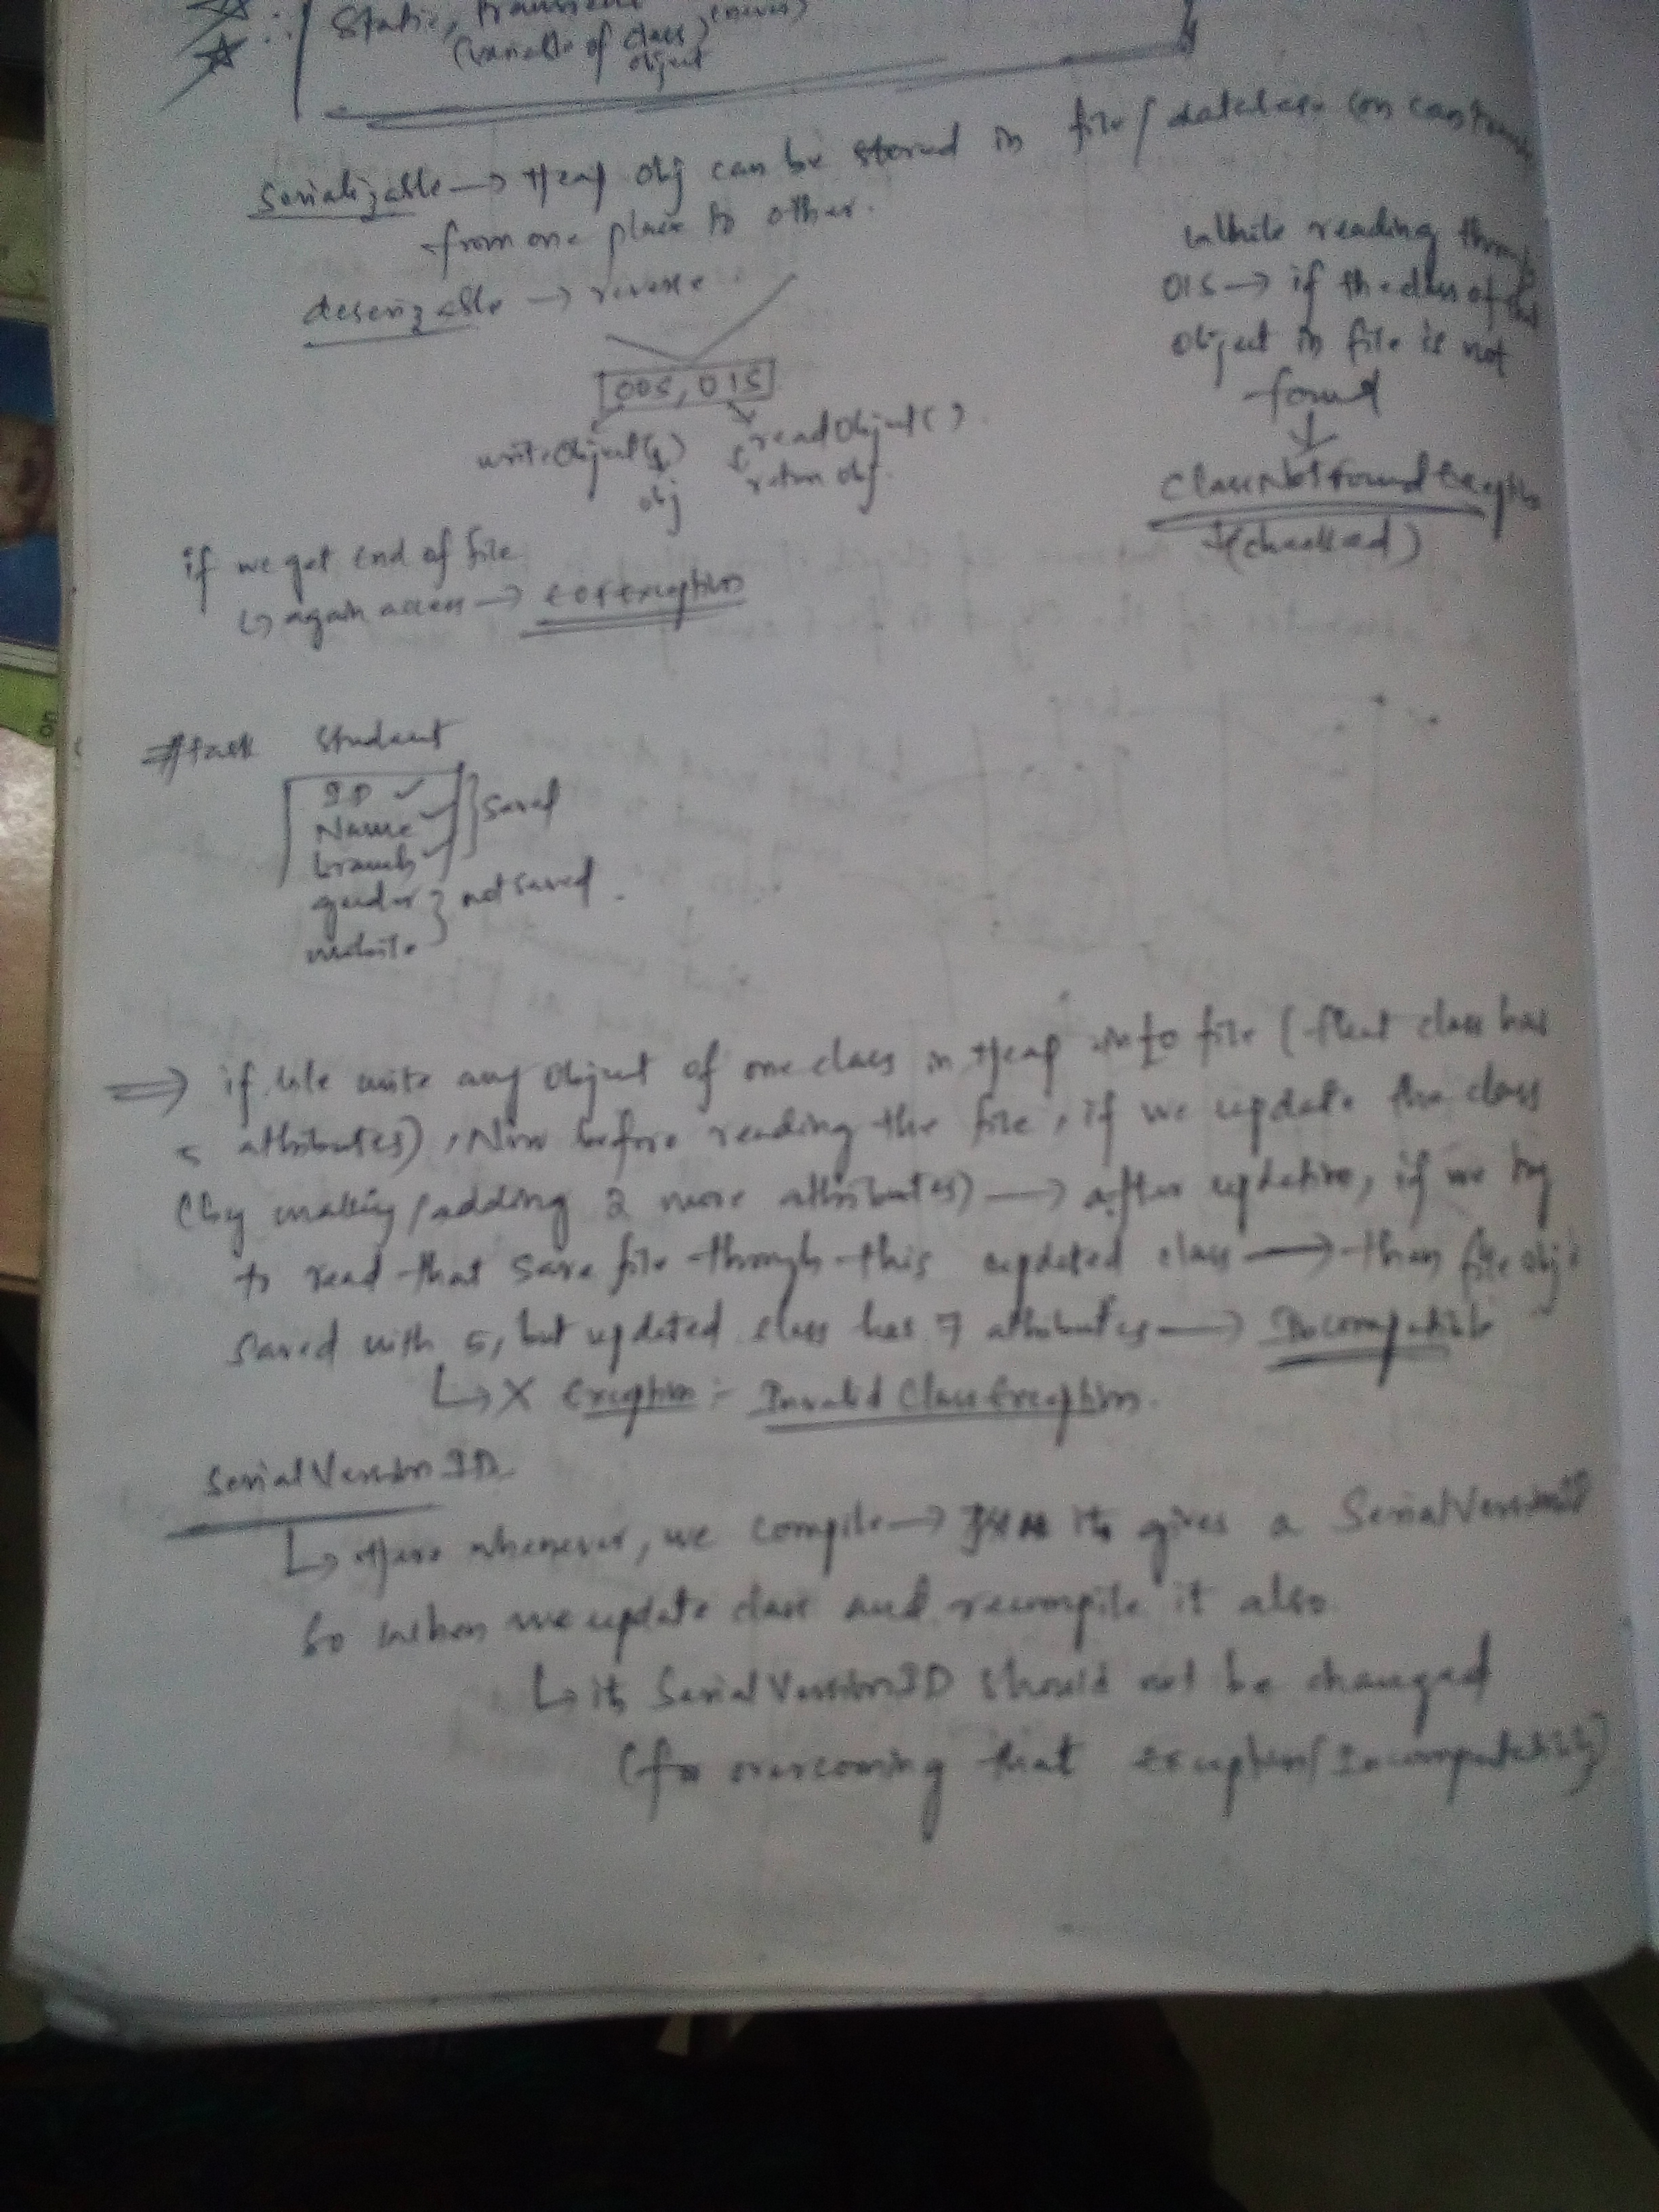 Static, transient (never)
(variable of class)
object
Serializable → Heap obj can be stored in file / database (on can
from one place to other.
deserizable → reverse
OOS, OIS
writeObject( )
obj
readObject( )
return obj.
While reading through
OIS → if the class of that
object in file is not
found
↓
ClassNotFoundExceptio
(checked)
if we get end of file
↳ again access → EOFException
# task Student
ID ✓
Name ✓
branch ✓
} Saved
gender
website
} not saved.
⇒ if we write any object of one class in Heap into file (that class has
5 attributes), Now before reading the file, if we update the class
(by making / adding 2 more attributes) → after updation, if we try
to read that save file through this updated class → then file obj
saved with 5, but updated class has 7 attributes → Incompatible
↳ X Exception :- Invalid ClassException.
SerialVersionID
↳ Here whenever, we compile → it gives a SerialVersionID
So when we update class and recompile it also.
↳ its SerialVersionID should not be changed
(for overcoming that exception/